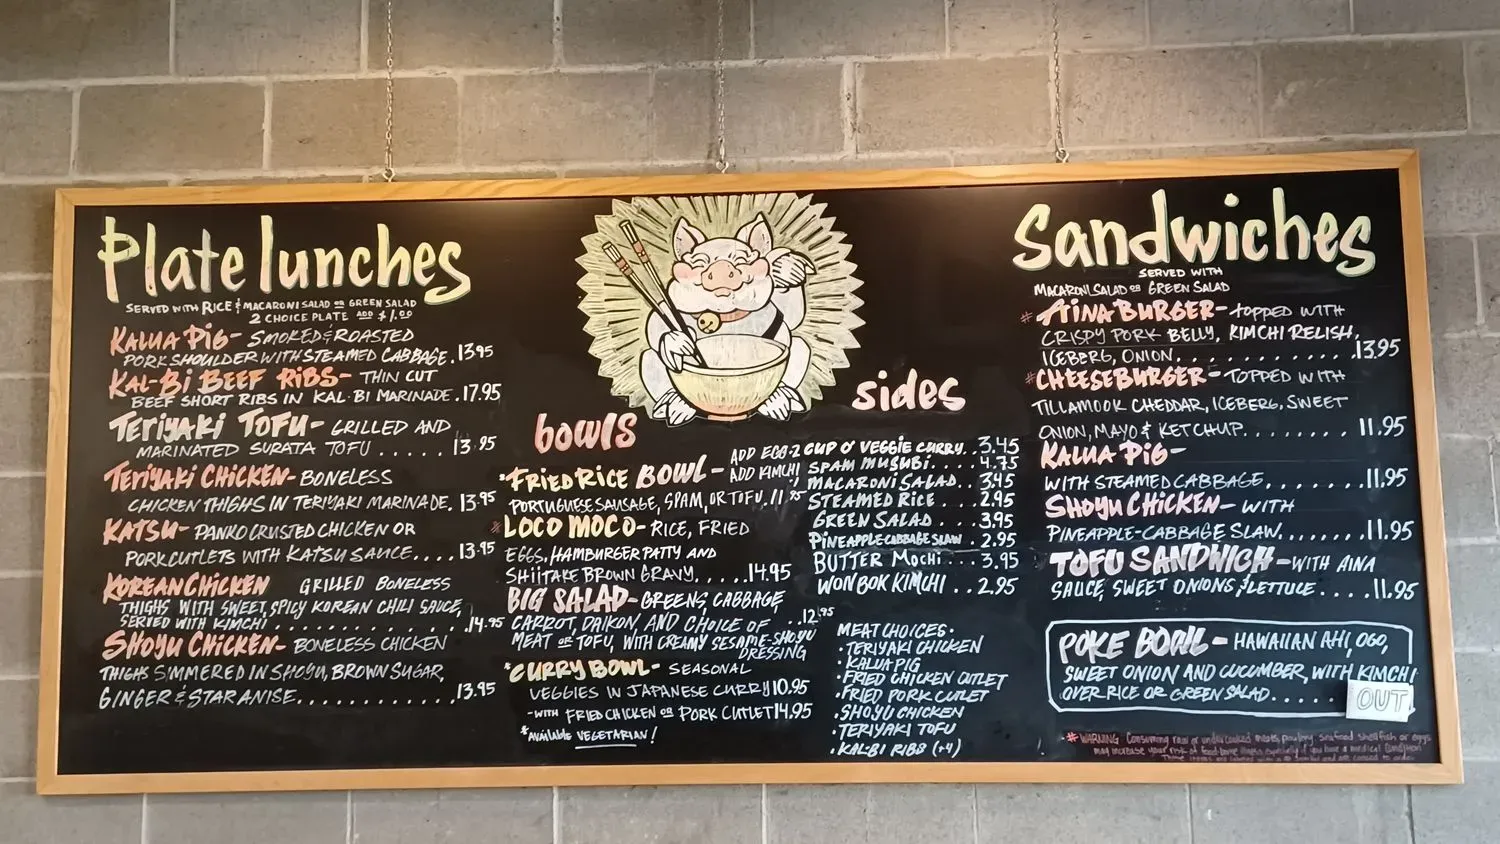 Plate lunches
SERVED WITH RICE & MACARONI SALAD OR GREEN SALAD
2 CHOICE PLATE ADD $1.00
KALUA PIG- SMOKED & ROASTED
PORK SHOULDER WITH STEAMED CABBAGE. 13.95
KAL-BI BEEF RIBS- THIN CUT
BEEF SHORT RIBS IN KAL-BI MARINADE. 17.95
TERIYAKI TOFU- GRILLED AND
MARINATED SURATA TOFU ..... 13.95
TERIYAKI CHICKEN- BONELESS
CHICKEN THIGHS IN TERIYAKI MARINADE. 13.95
KATSU- PANKO CRUSTED CHICKEN OR
PORK CUTLETS WITH KATSU SAUCE.... 13.95
KOREAN CHICKEN GRILLED BONELESS
THIGHS WITH SWEET, SPICY KOREAN CHILI SAUCE,
SERVED WITH KIMCHI .............. 14.95
SHOYU CHICKEN- BONELESS CHICKEN
THIGHS SIMMERED IN SHOYU, BROWN SUGAR,
GINGER & STAR ANISE............ 13.95
bowls
*FRIED RICE BOWL- ADD EGG-2
ADD KIMCHI
PORTUGUESE SAUSAGE, SPAM, OR TOFU. 11.95
*LOCO MOCO- RICE, FRIED
EGGS, HAMBURGER PATTY AND
SHIITAKE BROWN GRAVY......14.95
BIG SALAD- GREENS, CABBAGE,
CARROT, DAIKON, AND CHOICE OF ..12.95
MEAT OR TOFU, WITH CREAMY SESAME-SHOYU
DRESSING
*CURRY BOWL- SEASONAL
VEGGIES IN JAPANESE CURRY 10.95
-WITH FRIED CHICKEN OR PORK CUTLET 14.95
*Available VEGETARIAN!
sides
CUP O' VEGGIE CURRY..3.45
SPAM MUSUBI.... 4.75
MACARONI SALAD.. 3.45
STEAMED RICE ... 2.95
GREEN SALAD ... 3.95
PINEAPPLE-CABBAGE SLAW . 2.95
BUTTER MOCHI ... 3.95
WON BOK KIMCHI .. 2.95
MEAT CHOICES-
• TERIYAKI CHICKEN
• KALUA PIG
• FRIED CHICKEN CUTLET
• FRIED PORK CUTLET
• SHOYU CHICKEN
• TERIYAKI TOFU
• KAL-BI RIBS (+4)
Sandwiches
SERVED WITH
MACARONI SALAD OR GREEN SALAD
#AINA BURGER- TOPPED WITH
CRISPY PORK BELLY, KIMCHI RELISH,
ICEBERG, ONION............13.95
#CHEESEBURGER- TOPPED WITH
TILLAMOOK CHEDDAR, ICEBERG, SWEET
ONION, MAYO & KETCHUP........ 11.95
KALUA PIG-
WITH STEAMED CABBAGE.......11.95
SHOYU CHICKEN- WITH
PINEAPPLE-CABBAGE SLAW.......11.95
TOFU SANDWICH- WITH AINA
SAUCE, SWEET ONIONS, & LETTUCE ....11.95
POKE BOWL- HAWAIIAN AHI, OGO,
SWEET ONION AND CUCUMBER, WITH KIMCHI
OVER RICE OR GREEN SALAD......
OUT
# WARNING Consuming raw or undercooked meats, poultry, seafood shellfish or eggs
may increase your risk of food borne illness especially if you have a medical condition
These items are